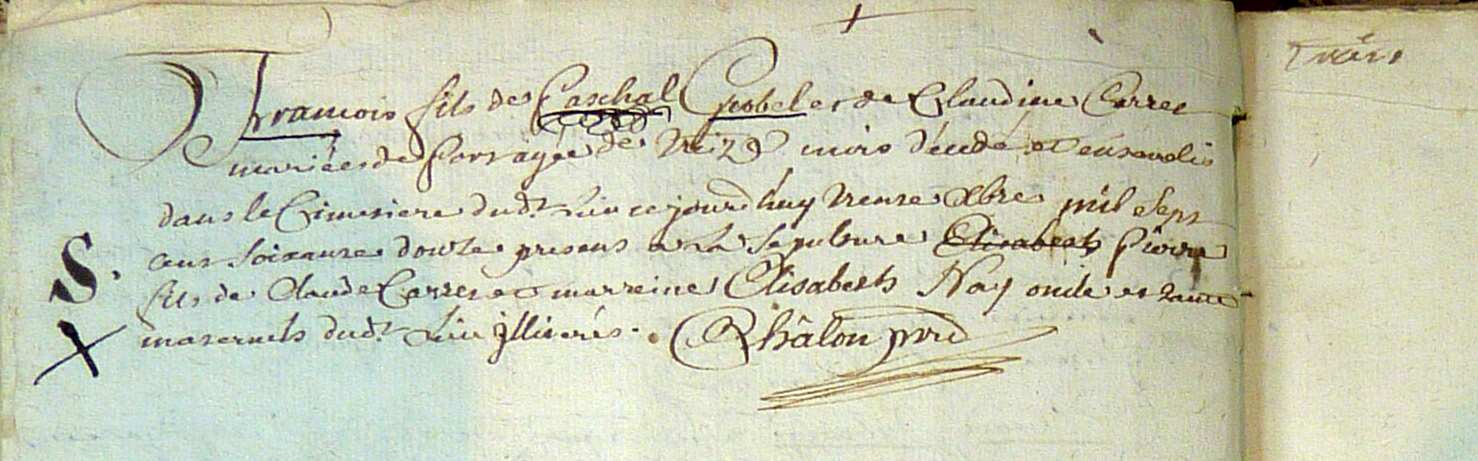 François fils de Paschal Grobel et de Claudine Carrer
mariées de Porr agée de treize mois décédé et ensevelis
dans le Cimetiere dud.t Lieu ce jourd'huy trente Xbre mil sept
S. cent soixante douze presens a la sepulture Elisabeth Pierre
fils de Claude Carrer et marreine Elisabeth Nay oncle et tante
X maternels dud.t Lieu illiterés. Châlon